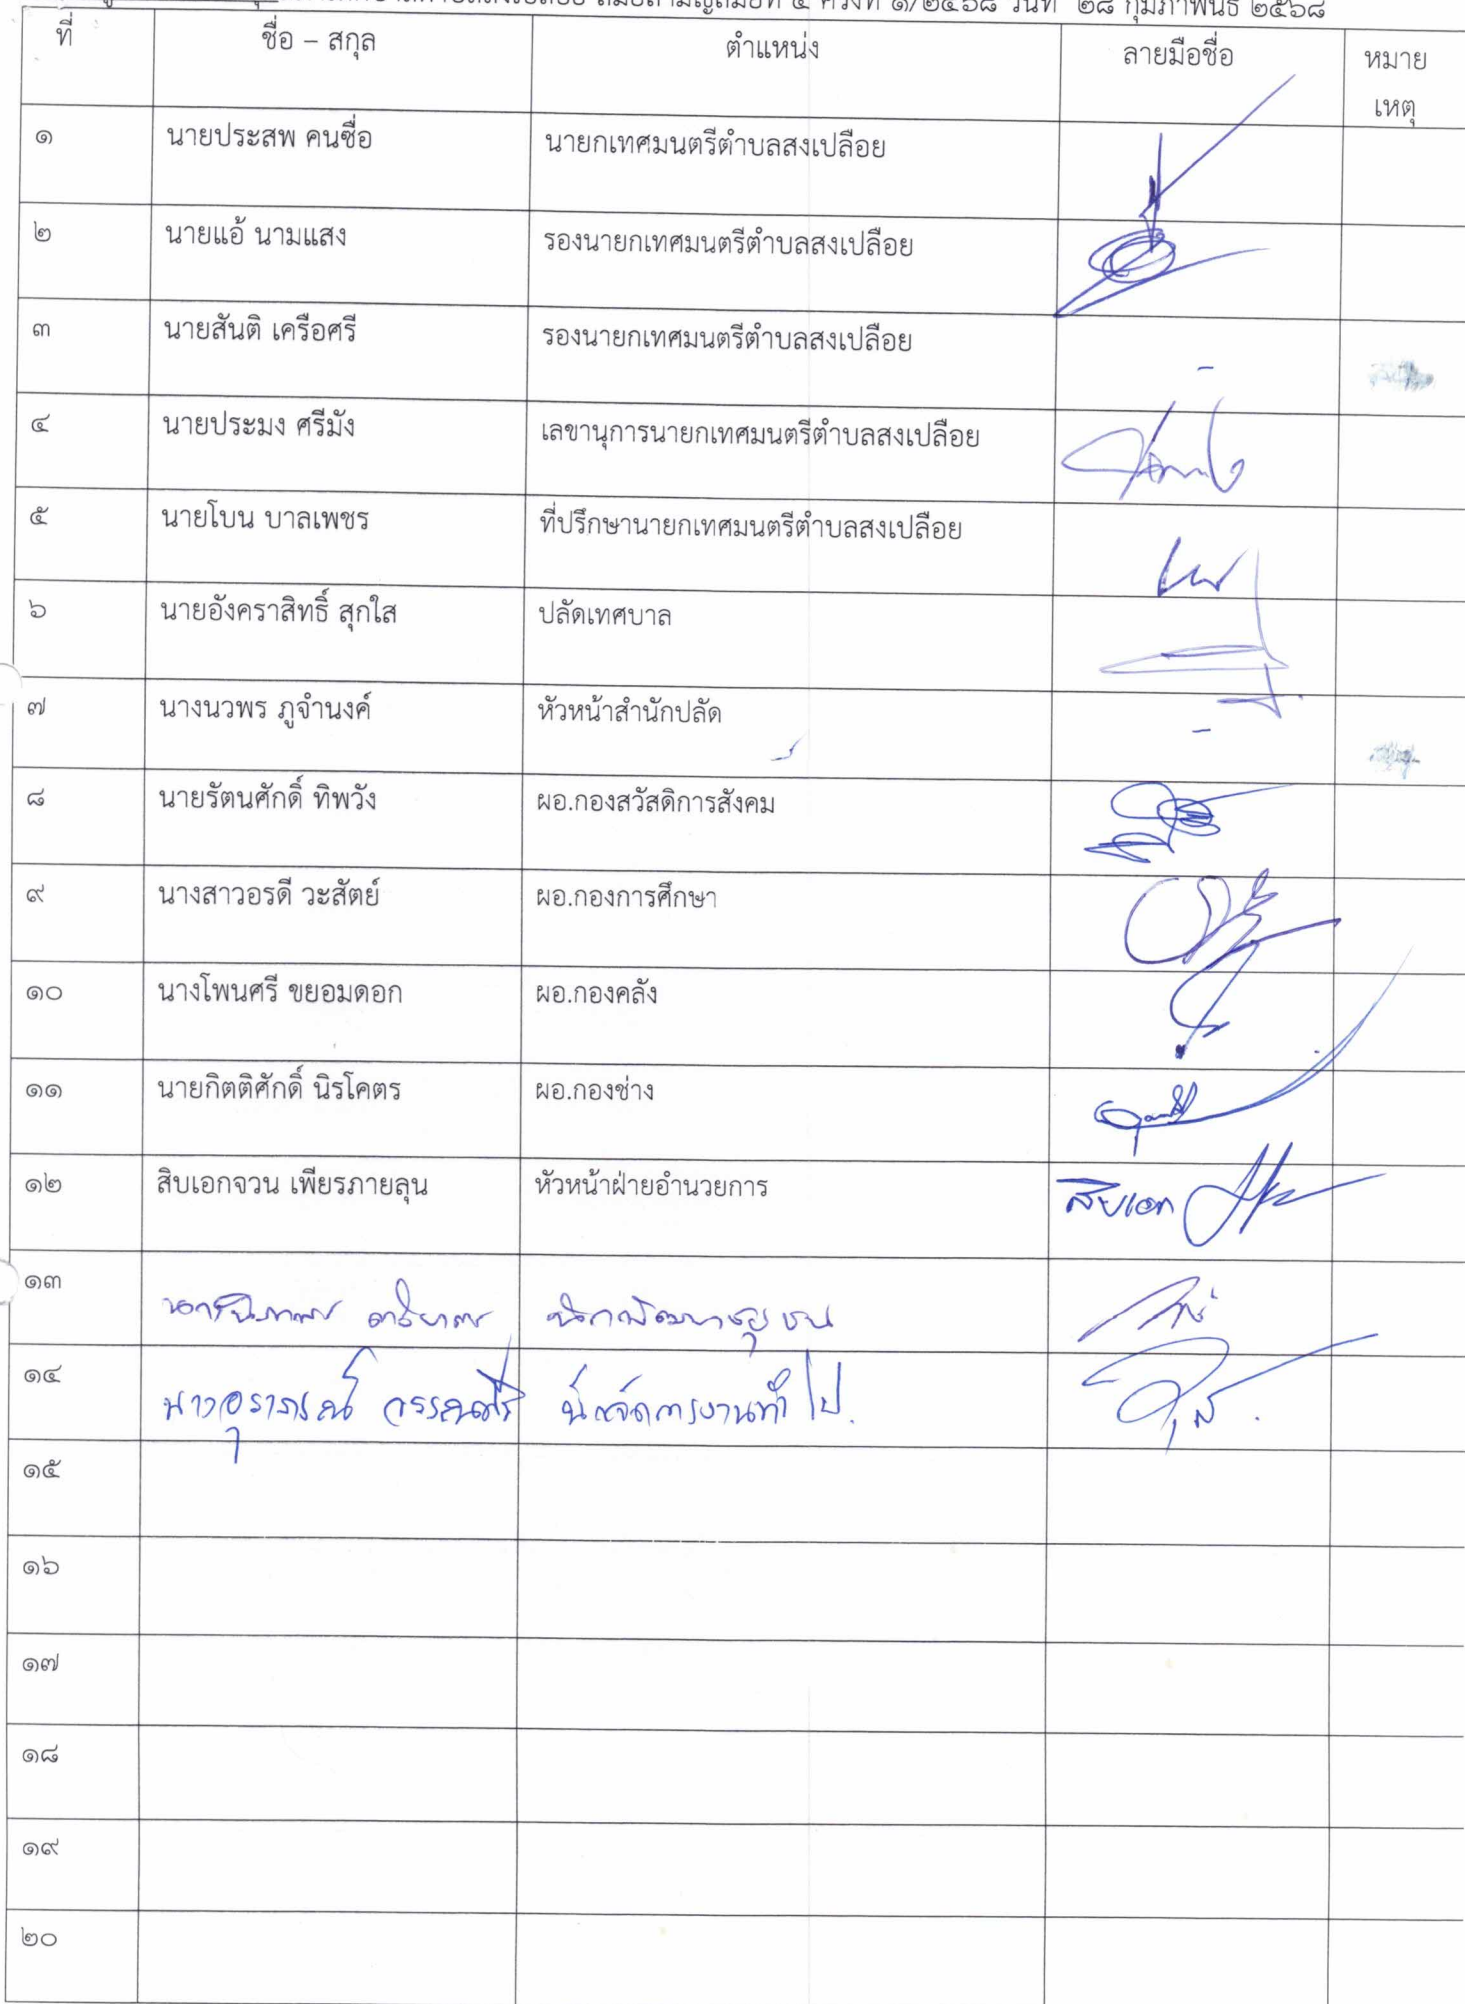 สมัยสามัญสมัยที่ ๔ ครั้งที่ ๑/๒๕๖๘ วันที่ ๒๘ กุมภาพันธ์ ๒๕๖๘
ที่ ชื่อ – สกุล ตำแหน่ง ลายมือชื่อ หมาย
เหตุ
๑ นายประสพ คนซื่อ นายกเทศมนตรีตำบลสงเปลือย
๒ นายแอ้ นามแสง รองนายกเทศมนตรีตำบลสงเปลือย
๓ นายสันติ เครือศรี รองนายกเทศมนตรีตำบลสงเปลือย -
๔ นายประมง ศรีมัง เลขานุการนายกเทศมนตรีตำบลสงเปลือย
๕ นายโบน บาลเพชร ที่ปรึกษานายกเทศมนตรีตำบลสงเปลือย
๖ นายอังคราสิทธิ์ สุกใส ปลัดเทศบาล
๗ นางนวพร ภูจำนงค์ หัวหน้าสำนักปลัด -
๘ นายรัตนศักดิ์ ทิพวัง ผอ.กองสวัสดิการสังคม
๙ นางสาวอรดี วะสัตย์ ผอ.กองการศึกษา
๑๐ นางโพนศรี ขยอมดอก ผอ.กองคลัง
๑๑ นายกิตติศักดิ์ นิรโคตร ผอ.กองช่าง
๑๒ สิบเอกจวน เพียรภายลุน หัวหน้าฝ่ายอำนวยการ สิบเอก
๑๓ นักพัฒนาชุมชน
๑๔ นักจัดการงานทั่วไป.
๑๕
๑๖
๑๗
๑๘
๑๙
๒๐